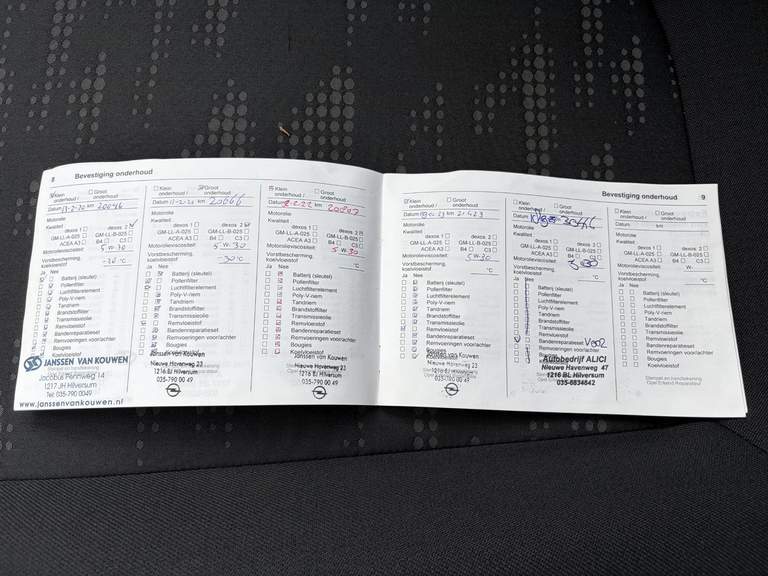 8 Bevestiging onderhoud
Klein onderhoud / Groot onderhoud
Datum 13-2-20 km 20046
Motorolie
Kwaliteit
dexos 1 dexos 2
GM-LL-A-025 GM-LL-B-025
ACEA A3 B4 C3
Motorolieviscositeit 5 W-30
Vorstbescherming, koelvloeistof -30 °C
Ja Nee
Batterij (sleutel)
Pollenfilter
Luchtfilterelement
Poly-V-riem
Tandriem
Brandstoffilter
Transmissieolie
Remvloeistof
Bandenreparatieset
Remvoeringen voor/achter
Bougies
Koelvloeistof
JANSSEN VAN KOUWEN
Jacobus Pennweg 14
1217 JH Hilversum
Tel: 035-790 0049
www.janssenvankouwen.nl
Klein onderhoud / Groot onderhoud
Datum km 20666
Motorolie
Kwaliteit
dexos 1 dexos 2
GM-LL-A-025 GM-LL-B-025
ACEA A3 B4 C3
Motorolieviscositeit: 5 W-30
Vorstbescherming, koelvloeistof -30 °C
Ja Nee
Batterij (sleutel)
Pollenfilter
Luchtfilterelement
Poly-V-riem
Tandriem
Brandstoffilter
Transmissieolie
Remvloeistof
Bandenreparatieset
Remvoeringen voor/achter
Bougies
Koelvloeistof
Janssen van Kouwen
Nieuwe Havenweg 23
1216 BJ Hilversum
035-790 00 49
Klein onderhoud / Groot onderhoud
Datum km
Motorolie
Kwaliteit
dexos 1 dexos 2
GM-LL-A-025 GM-LL-B-025
ACEA A3 B4 C3
Motorolieviscositeit: 5 W-30
Vorstbescherming, koelvloeistof °C
Ja Nee
Batterij (sleutel)
Pollenfilter
Luchtfilterelement
Poly-V-riem
Tandriem
Brandstoffilter
Transmissieolie
Remvloeistof
Bandenreparatieset
Remvoeringen voor/achter
Bougies
Koelvloeistof
Janssen van Kouwen
Nieuwe Havenweg 23
1216 BJ Hilversum
035-790 00 49
Bevestiging onderhoud 9
Klein onderhoud / Groot onderhoud
Datum km 21423
Motorolie
Kwaliteit
dexos 1 dexos 2
GM-LL-A-025 GM-LL-B-025
ACEA A3 B4 C3
Motorolieviscositeit: 5 W-30
Vorstbescherming, koelvloeistof °C
Ja Nee
Batterij (sleutel)
Pollenfilter
Luchtfilterelement
Poly-V-riem
Tandriem
Brandstoffilter
Transmissieolie
Remvloeistof
Bandenreparatieset
Remvoeringen voor/achter
Bougies
Koelvloeistof
Janssen van Kouwen
Nieuwe Havenweg 23
1216 BJ Hilversum
035-790 00 49
Klein onderhoud / Groot onderhoud
Datum
Motorolie
Kwaliteit
dexos 1 dexos 2
GM-LL-A-025 GM-LL-B-025
ACEA A3 B4 C3
Motorolieviscositeit:
Vorstbescherming, koelvloeistof °C
Ja Nee
Batterij (sleutel)
Pollenfilter
Luchtfilterelement
Poly-V-riem
Tandriem
Brandstoffilter
Transmissieolie
Remvloeistof
Bandenreparatieset
Remvoeringen voor/achter
Bougies
Koelvloeistof
Autobedrijf ALICI
Nieuwe Havenweg 47
1216 BL Hilversum
035-6834642
Klein onderhoud / Groot onderhoud
Datum km
Motorolie
Kwaliteit
dexos 1 dexos 2
GM-LL-A-025 GM-LL-B-025
ACEA A3 B4 C3
Motorolieviscositeit: W-
Vorstbescherming, koelvloeistof °C
Ja Nee
Batterij (sleutel)
Pollenfilter
Luchtfilterelement
Poly-V-riem
Tandriem
Brandstoffilter
Transmissieolie
Remvloeistof
Bandenreparatieset
Remvoeringen voor/achter
Bougies
Koelvloeistof
Stempel en handtekening
Opel Erkend Reparateur